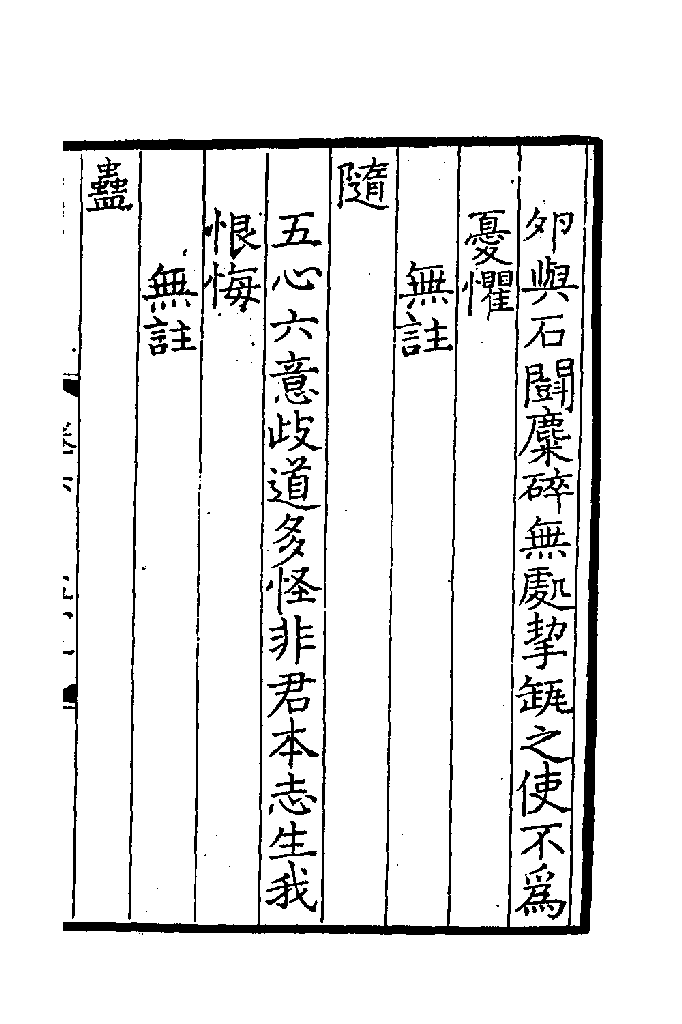 夘與石鬭麋碎無處挈缾之使不爲
憂懼
無註
隨
五心六意歧道多怪非君本志生我
恨悔
無註
蠱